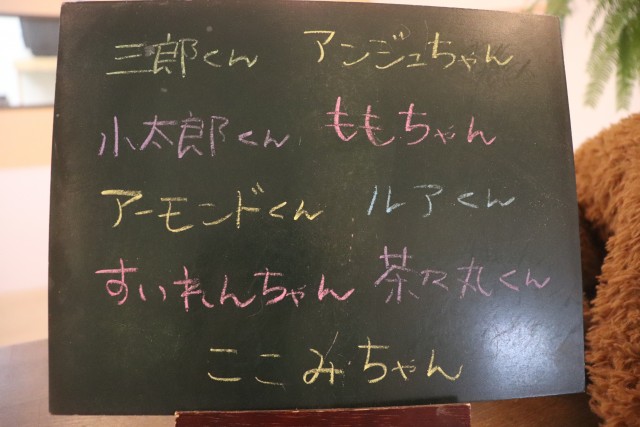 三郎くん アンジュちゃん
小太郎くん ももちゃん
アーモンドくん ルアくん
すいれんちゃん 茶々丸くん
ここみちゃん